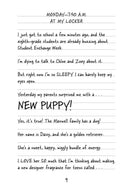 MONDAY—7:40 A.M.
AT MY LOCKER
I just got to school a few minutes ago, and the
eighth-grade students are already buzzing about
Student Exchange Week.
I'm dying to talk to Chloe and Zoey about it.
But right now I'm so SLEEPY I can barely keep my
eyes open.
Yesterday my parents surprised me with a . . .
NEW PUPPY!
Yes, it's true! The Maxwell family has a dog!
Her name is Daisy, and she's a golden retriever.
She's a sweet, happy, wiggly bundle of energy.
I LOVE her SO much that I'm thinking about making
a new designer fragrance for teens called . . .
1